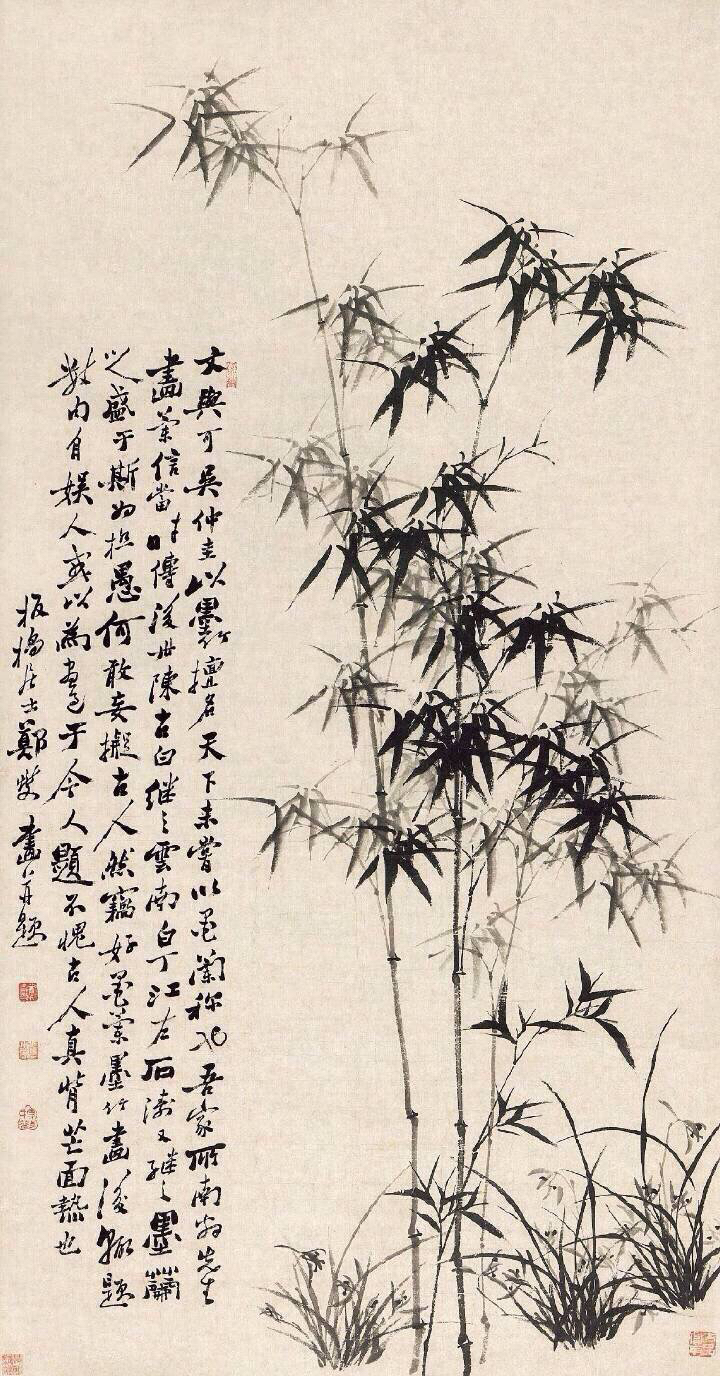 文與可吳仲圭以墨竹擅名天下未嘗以墨蘭称也吾家所南翁先生
畫蘭信當時傳後世陳古白继之雲南白丁江左石濤又继之墨蘭
之盛于斯為极愚何敢妄擬古人然竊好墨蘭墨竹畫後輒題
自娱人或以為于今人題不愧古人真背芒面熱也
板橋居士鄭燮畫并題